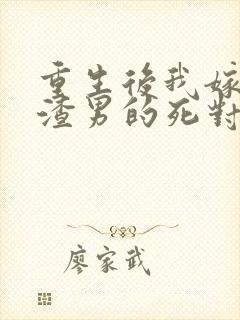 重生後我嫁
渣男的死對
廖家武